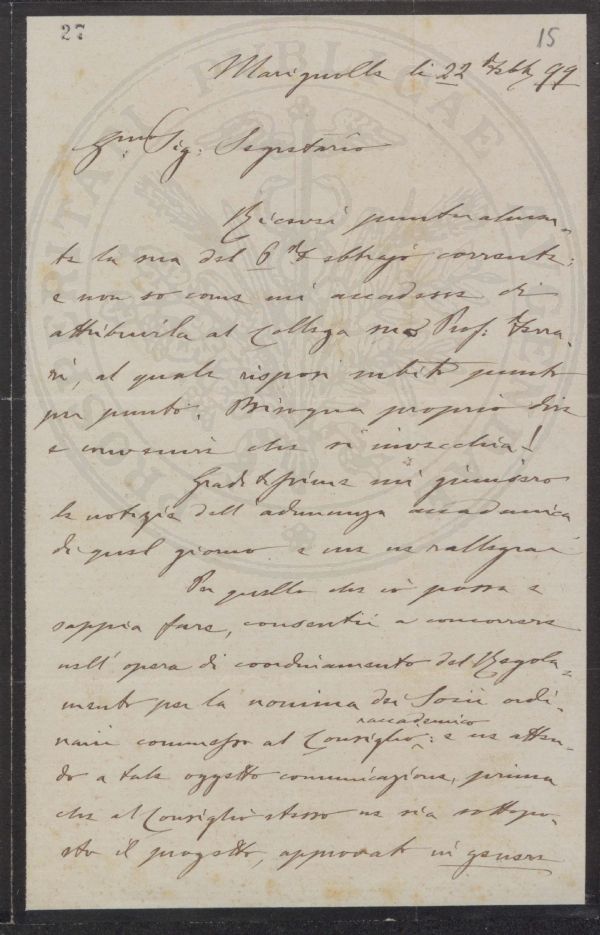 27
15
Marignolle li 22 Febb. 99
Ill.mo Sig: Segretario
Ricevei puntualmen-
te la sua del 6 Febbrajo corrente;
e non so come mi accadesse di
attribuirla al Collega suo Prof: Ferra-
ri, al quale risposi subito punto
per punto. Bisogna proprio dire
e convenire che si invecchia!
Graditissime mi giunsero
le notizie dell'adunanza accademica
di quel giorno e me ne rallegrai
Per quello che io possa e
sappia fare, consentii a concorrere
nell'opera di coordinamento del Regola-
mento per la nomina dei Socii ordi-
narii commesso al Consiglio accademico: e ne atten-
do a tale oggetto comunicazione, prima
che al Consiglio stesso ne sia sottopo-
sto il progetto, approvato in genere
PROSPERITATI PUBLICAE AUGENDAE